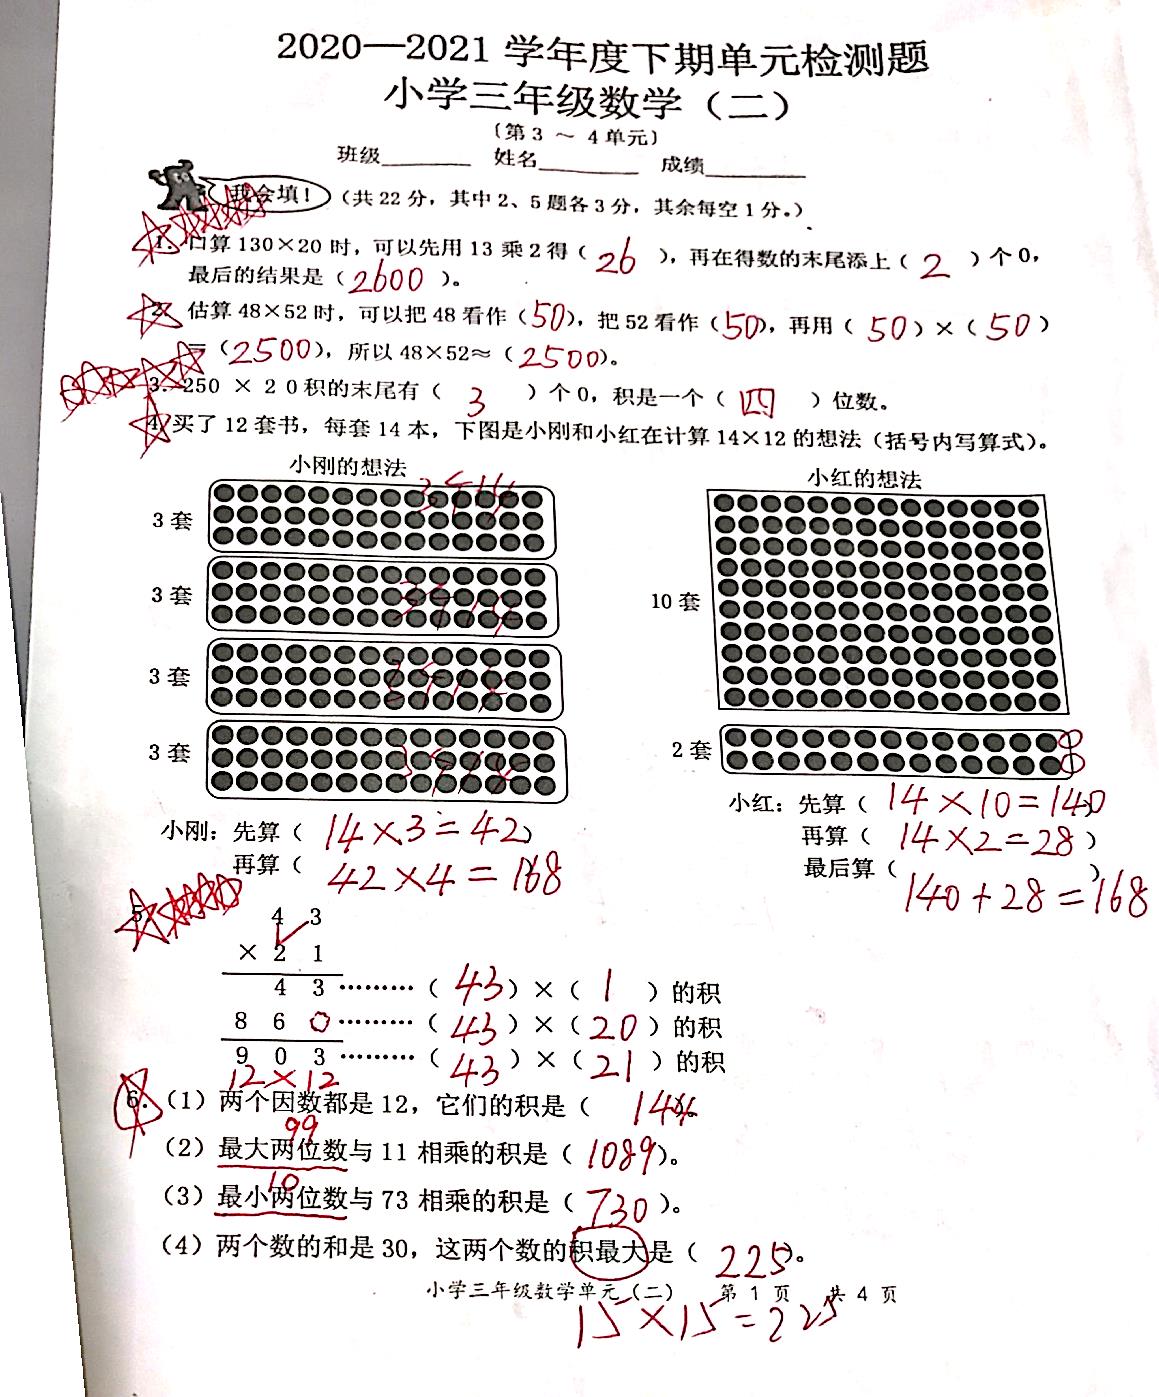 2020—2021 学年度下期单元检测题
小学三年级数学（二）
〔第 3 ～ 4 单元〕
班级_______ 姓名________ 成绩________
我会填！（共 22 分，其中 2、5 题各 3 分，其余每空 1 分。）
1. 口算 130×20 时，可以先用 13 乘 2 得（ 26 ），再在得数的末尾添上（ 2 ）个 0，
最后的结果是（ 2600 ）。
2. 估算 48×52 时，可以把 48 看作（50），把 52 看作（50），再用（ 50 ）×（ 50 ）
=（2500），所以 48×52≈（2500）。
3. 250 × 2 0 积的末尾有（ 3 ）个 0，积是一个（ 四 ）位数。
4. 买了 12 套书，每套 14 本，下图是小刚和小红在计算 14×12 的想法（括号内写算式）。
小刚的想法
小红的想法
3 套
3 套
3 套
3 套
10 套
2 套
小刚：先算（ 14×3=42 ）
再算（ 42×4=168
小红：先算（ 14×10=140 ）
再算（ 14×2=28 ）
最后算（ 140+28=168 ）
5.
4 3
× 2 1
4 3 ………（ 43 ）×（ 1 ）的积
8 6 0 ………（ 43 ）×（ 20 ）的积
9 0 3 ………（ 43 ）×（ 21 ）的积
12×12
6.（1）两个因数都是 12，它们的积是（ 144 ）。
99
（2）最大两位数与 11 相乘的积是（ 1089 ）。
10
（3）最小两位数与 73 相乘的积是（ 730 ）。
（4）两个数的和是 30，这两个数的积最大是（ 225 ）。
小学三年级数学单元（二） 第 1 页 共 4 页
15×15=225